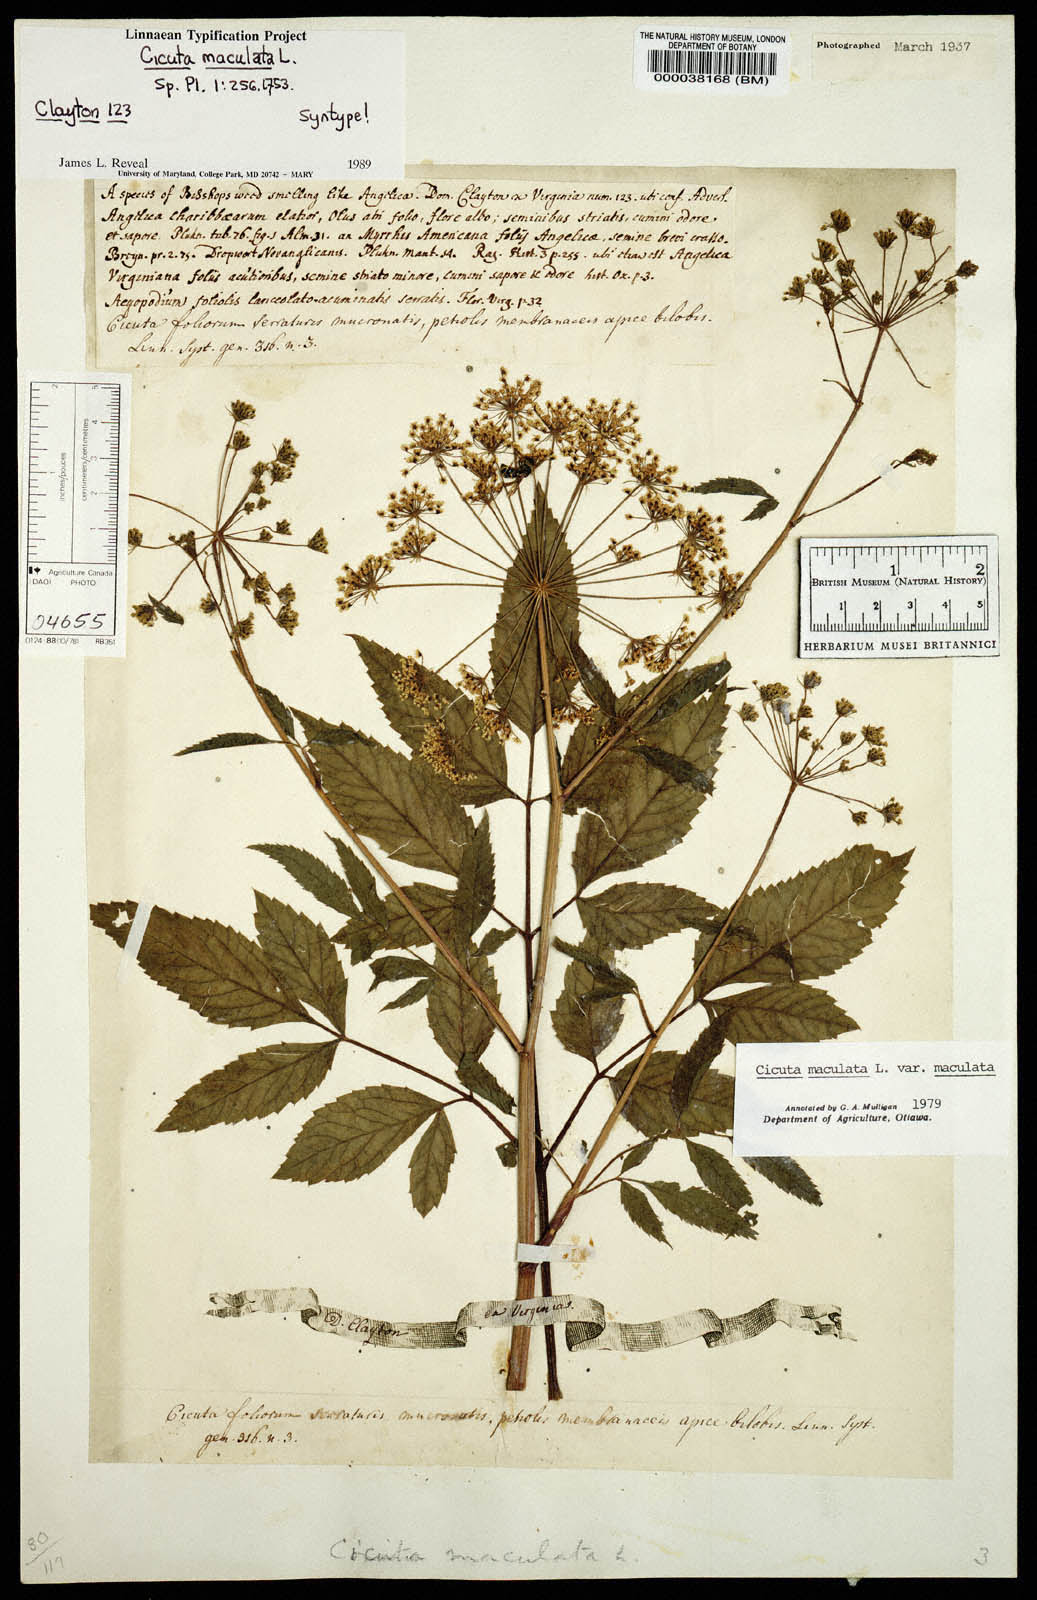 Linnaean Typification Project
Cicuta maculata L.
Sp. Pl. 1:256. 1753.
Clayton 123
Syntype!
James L. Reveal 1989
University of Maryland, College Park, MD 20742 – MARY
THE NATURAL HISTORY MUSEUM, LONDON
DEPARTMENT OF BOTANY
000038168 (BM)
Photographed March 1937
A species of Bishops weed smelling like Angelica. Dom. Clayton è Virginia num. 123. ubi conf. Advers.
Angelica Charibbæarum elatior, Olus atri folio, flore albo; seminibus striatis, cumini odore
et sapore. Plukn. tab. 76. fig. 1 Alm. 31. an Myrrhis Americana foliis Angelicæ, semine brevi crasso.
Breyn. pr. 2. 75. Dropwort Novanglicanis. Plukn. Mant. 54. Raj. Hist. 3 p. 255. ubi etiam est Angelica
Virginiana foliis acutioribus, semine striato minore, cumini sapore & odore hist. Ox. p. 3.
Aegopodium foliolis lanceolato-acuminatis serratis. Flor. Virg. p. 32
Cicuta foliorum serraturis mucronatis, petiolis membranaceis apice bilobis.
Linn. Syst. gen. 316. n. 3.
inches/pouces
centimeters/centimètres
Agriculture Canada
(DAO) PHOTO
04655
0124-88(10/78) RB351
1 2
BRITISH MUSEUM (NATURAL HISTORY)
1 2 3 4 5
HERBARIUM MUSEI BRITANNICI
Cicuta maculata L. var. maculata
Annotated by G. A. Mulligan 1979
Department of Agriculture, Ottawa.
D. Clayton
ex Virginia.
Cicuta foliorum serraturis mucronatis, petiolis membranaceis apice bilobis. Linn. Syst.
gen. 316. n. 3.
80/117
Cicuta maculata L.
3